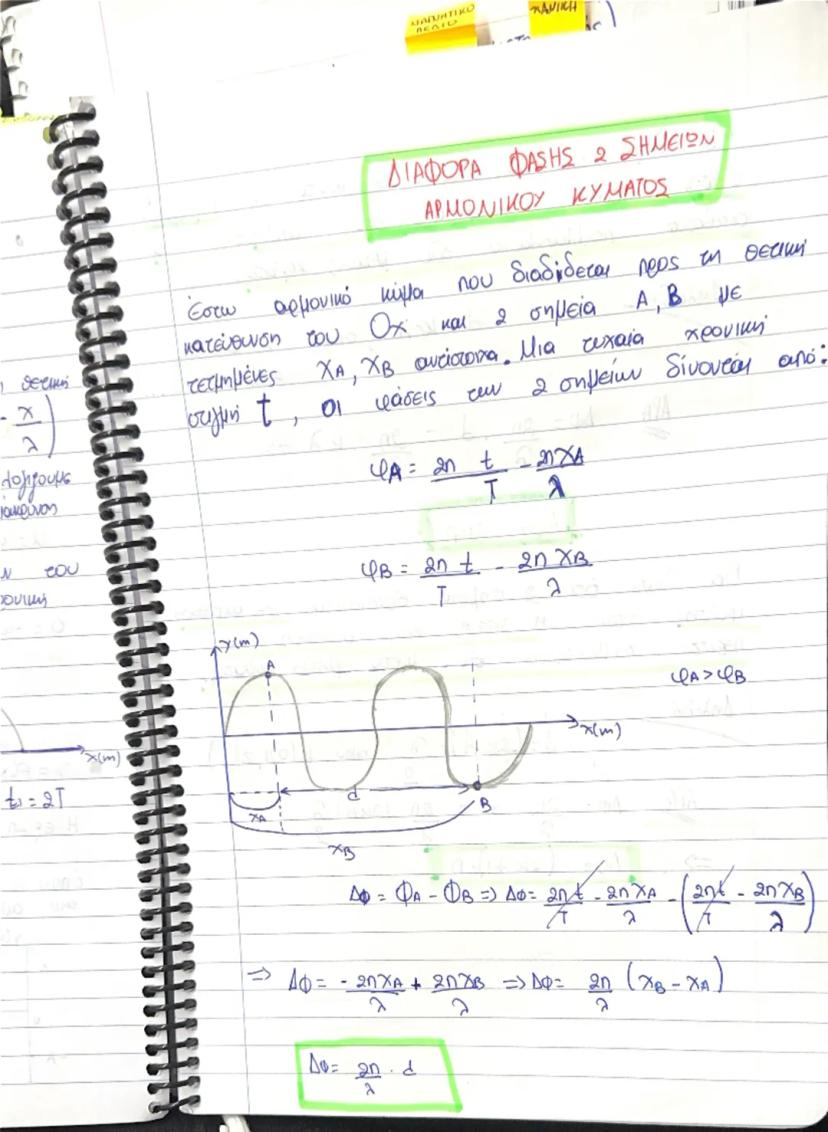 ΜΑΓΝΗΤΙΚΟ
ΠΕΔΙΟ
ΔΙΑΦΟΡΑ ΦΑΣΗΣ 2 ΣΗΜΕΙΩΝ
ΑΡΜΟΝΙΚΟΥ ΚΥΜΑΤΟΣ
Έστω αρμονικό κύμα που διαδίδεται προς τη θετική
κατεύθυνση του Οx και 2 σημεία Α, Β με
τετμημένες xA, xB αντίστοιχα. Μια τυχαία χρονική
στιγμή t, οι φάσεις των 2 σημείων δίνονται από:
φA = 2π t/T - 2πxA/λ
φB = 2π t/T - 2π xB/λ
y(m)
A
φA > φB
x(m)
d
B
xA
xB
Δφ = ΦA - ΦB => Δφ = 2πt/T - 2πxA/λ - (2πt/T - 2πxB/λ)
=> Δφ = - 2πxA/λ + 2πxB/λ => Δφ = 2π/λ (xB - xA)
Δφ = 2π/λ · d
θετική
- x/λ)
ν του
x(m)
t1 = 2T